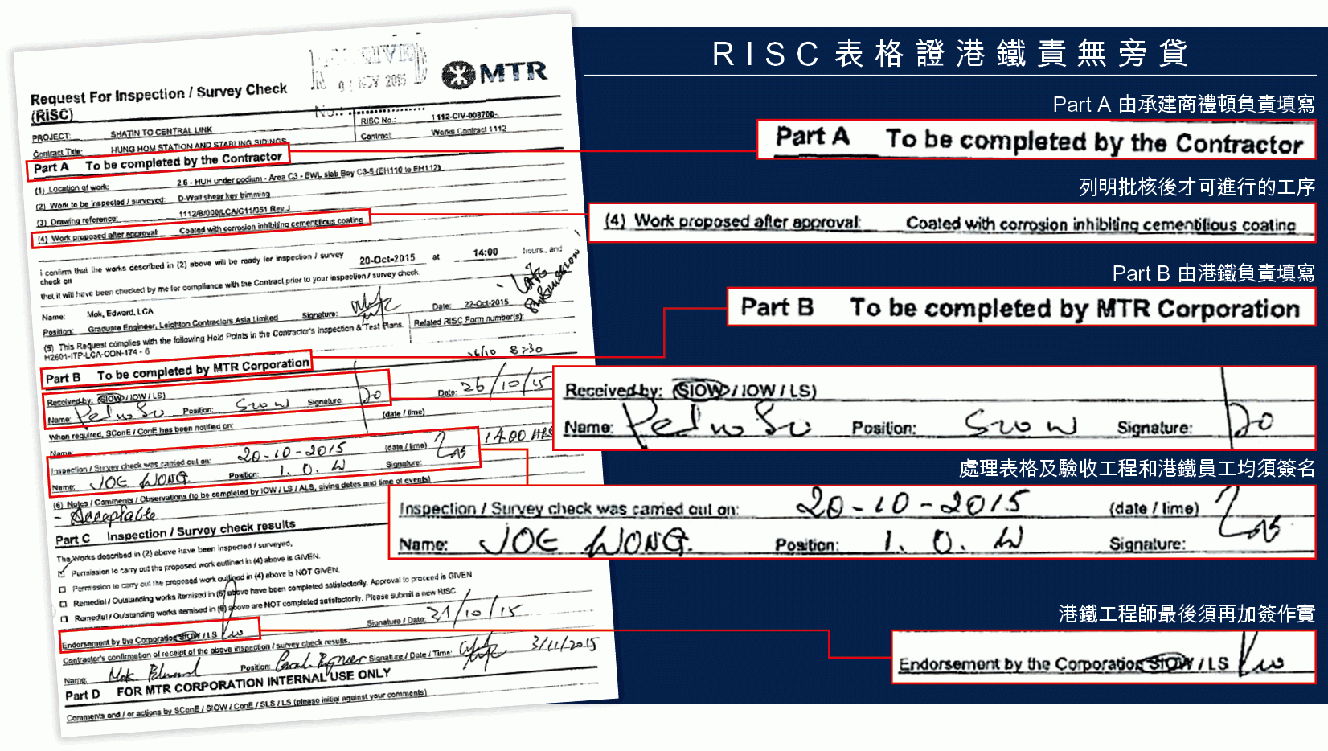 RECEIVED
01 NOV 2015
MTR
Request For Inspection / Survey Check
(RISC)
No.:
RISC No.: 1112-CIV-008700-
PROJECT: SHATIN TO CENTRAL LINK
Contract: Works Contract 1112
Contract Title: HUNG HOM STATION AND STABLING SIDINGS
Part A To be completed by the Contractor
(1) Location of work: 2.6 - HUH under podium - Area C3 - EWL slab Bay C3-5 (EH110 to EH112)
(2) Work to be inspected / surveyed: D-Wall shear key trimming
(3) Drawing reference: 1112/B/000/LCA/C11/051 Rev.J
(4) Work proposed after approval: Coated with corrosion inhibiting cementitious coating
I confirm that the works described in (2) above will be ready for inspection / survey check on 20-Oct-2015 at 14:00 hours, and
that it will have been checked by me for compliance with the Contract prior to your inspection / survey check.
Name: Mok, Edward, LCA Signature: Date: 22-Oct-2015
Position: Graduate Engineer, Leighton Contractors Asia Limited
(5) This Request complies with the following Hold Points in the Contractor's Inspection & Test Plans. Related RISC Form number(s):
H2601-ITP-LCA-CON-174 - 6
26/10 8:30
Part B To be completed by MTR Corporation
Received by: (SIOW / IOW / LS) Date: 26/10/15
Name: Pedro So Position: SIOW Signature:
When required, SConE / ConE has been notified on: (date / time)
Name:
Inspection / Survey check was carried out on: 20-10-2015 (date / time) 1400 HRS
Name: JOE WONG Position: I.O.W Signature:
(6) Notes / Comments / Observations (to be completed by IOW / LS / ALS, giving dates and time of events)
- Acceptable
Part C Inspection / Survey check results
The Works described in (2) above have been inspected / surveyed,
Permission to carry out the proposed work outlined in (4) above is GIVEN.
Permission to carry out the proposed work outlined in (4) above is NOT GIVEN.
Remedial / Outstanding works itemised in (6) above have been completed satisfactorily. Approval to proceed is GIVEN
Remedial / Outstanding works itemised in (6) above are NOT completed satisfactorily. Please submit a new RISC.
Endorsement by the Corporation SIOW / LS Signature / Date: 21/10/15
Contractor's confirmation of receipt of the above inspection / survey check results.
Name: Mok Edward Position: Signature / Date / Time: 3/11/2015
Part D FOR MTR CORPORATION INTERNAL USE ONLY
Comments and / or actions by SConE / SIOW / ConE / SLS / LS (please initial against your comments)
RISC表格證港鐵責無旁貸
Part A 由承建商禮頓負責填寫
Part A To be completed by the Contractor
列明批核後才可進行的工序
(4) Work proposed after approval: Coated with corrosion inhibiting cementitious coating
Part B 由港鐵負責填寫
Part B To be completed by MTR Corporation
Received by: (SIOW / IOW / LS)
Name: Pedro So Position: SIOW Signature:
處理表格及驗收工程和港鐵員工均須簽名
Inspection / Survey check was carried out on: 20-10-2015 (date / time)
Name: JOE WONG. Position: I.O.W Signature:
港鐵工程師最後須再加簽作實
Endorsement by the Corporation SIOW / LS